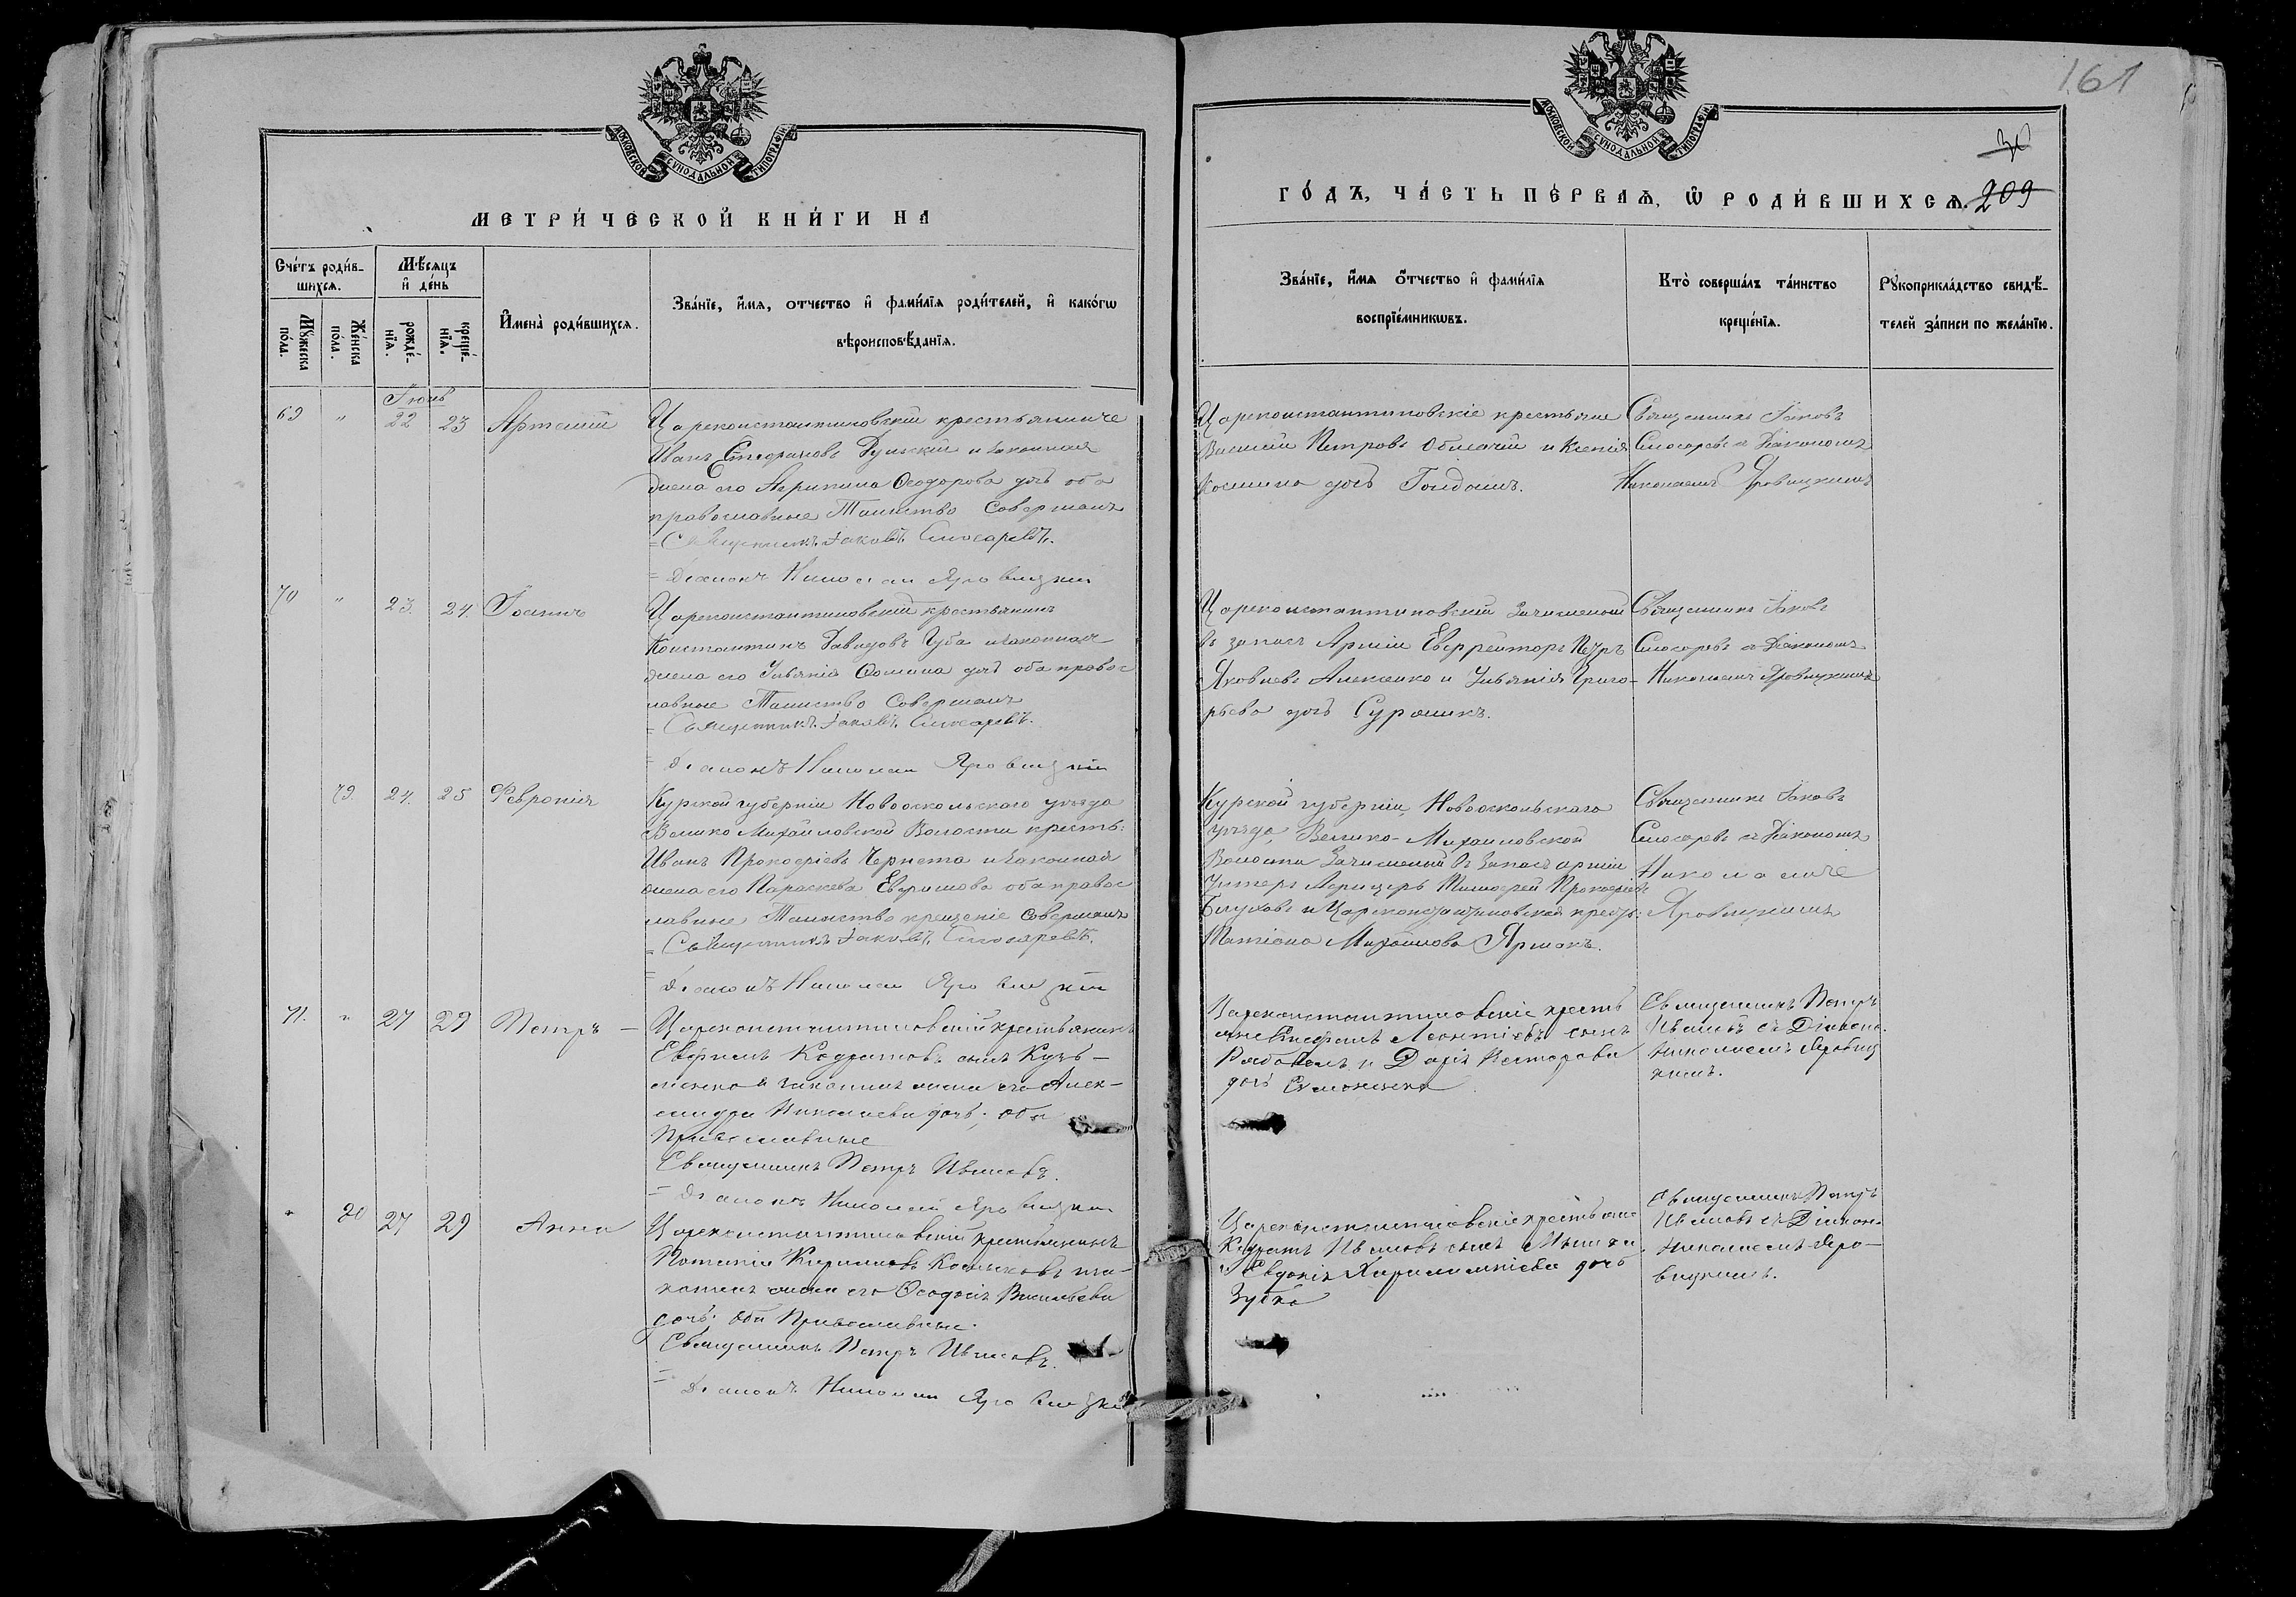 161
30
209
МОСКОВСКОЙ СѴНОДАЛЬНОЙ ТИПОГРАФІИ
МЕТРИ́ЧЕСКОЙ КНИ́ГИ НА
Сче́тъ роди́в-
шихсѧ.
Мꙋ́жеска
по́ла.
Же́нска
по́ла.
Мѣ́сѧцъ
и҆ де́нь
рожде́-
нїѧ.
креще́-
нїѧ.
И҆мена̀ роди́вшихсѧ.
Зва́нїе, и҆́мѧ, отчество и҆ фами́лїѧ роди́телей, и҆ како́гѡ
вѣроисповѣ́данїѧ.
Іюнь
69 " 22 23 Артемій
Цареконстантиновскій крестьянинъ
Иванъ Стефановъ и законная
жена его Агрипина Ѳеодорова дочь оба
православные Таинство Совершалъ
= Священникъ Іаковъ Слюсаревъ.
= Діаконъ Николай Яровицкій
70 " 23. 24. Іоаннъ
Цареконстантиновскій крестьянинъ
Константинъ Давидовъ Губа и законная
жена его Ульянія Ѳомина дочь оба правос
лавные Таинство Совершалъ
= Священникъ Іаковъ Слюсаревъ.
= Діаконъ Николай Яровицкій
19. 24. 25 Февронія
Курской губерніи Новооскольскаго уѣзда
Велико Михайловской Волости кресть:
Иванъ Прокофіевъ и законная
жена его Параскева оба правос
лавные Таинство крещеніе Совершалъ
= Священникъ Іаковъ Слюсаревъ.
= Діаконъ Николай Яровицкій
71. " 27 29 Петръ —
Цареконстантиновскій крестьянинъ
Евфимъ Кодратовъ сынъ Кузь-
менко и законная жена его Алек-
сандра Николаева дочь; оба
Православные
Священникъ Петръ Ивановъ.
= Діаконъ Николай Яровицкій
" 20 27 29 Анна
Цареконстантиновскій крестьянинъ
Кириловъ и за-
конная жена его Ѳеодосія Васильева
дочь; оба Православные.
Священникъ Петръ Ивановъ.
= Діаконъ Николай Яровицкій
МОСКОВСКОЙ СѴНОДАЛЬНОЙ ТИПОГРАФІИ
ГО́ДЪ, ЧА́СТЬ ПЕ́РВАѦ, Ѡ҆ РОДИ́ВШИХСѦ.
Зва́нїе, и҆́мѧ ѻ҆́тчество и҆ фами́лїѧ
воспрїе́мникѡвъ.
Кто̀ соверша́лъ та́инство
креще́нїѧ.
Рꙋкоприкла́дство свидѣ́-
телей за́писи по жела́нїю.
Цареконстантиновскіе крестьяне
Василій Петровъ и Ксенія
Космина дочь
Священникъ Іаковъ
Слюсаревъ съ Діакономъ
Николаемъ Яровицкимъ
Цареконстантиновскій Зачисленой
въ запасъ Арміи Ефрейторъ Петръ
Яковлевъ Алексенко и Ульянія Григо-
рьева дочь
Священникъ Іаковъ
Слюсаревъ съ Діакономъ
Николаемъ Яровицкимъ
Курской губерніи, Новооскольскаго
уѣзда, Велико-Михайловской
Волости Зачисленый въ Запасъ арміи
Унтеръ Офицеръ Тимофей Прокофіевъ
и Цареконстантиновская крестьян:
Татіана Михайлова Ярмакъ.
Священникъ Іаковъ
Слюсаревъ съ Діакономъ
Николаемъ
Яровицкимъ
Цареконстантиновскіе кресть
яне Стефанъ Леонтіевъ сынъ
и Дарія Несторова
дочь
Священникъ Петръ
Ивановъ съ Діакономъ
Николаемъ Яровиц
кимъ.
Цареконстантиновскіе крестьяне
Кодратъ Ивановъ сынъ
и Евдокія Харалампіева дочь
Зубко
Священникъ Петръ
Ивановъ съ Діакон.
Николаемъ Яро-
вицкимъ.